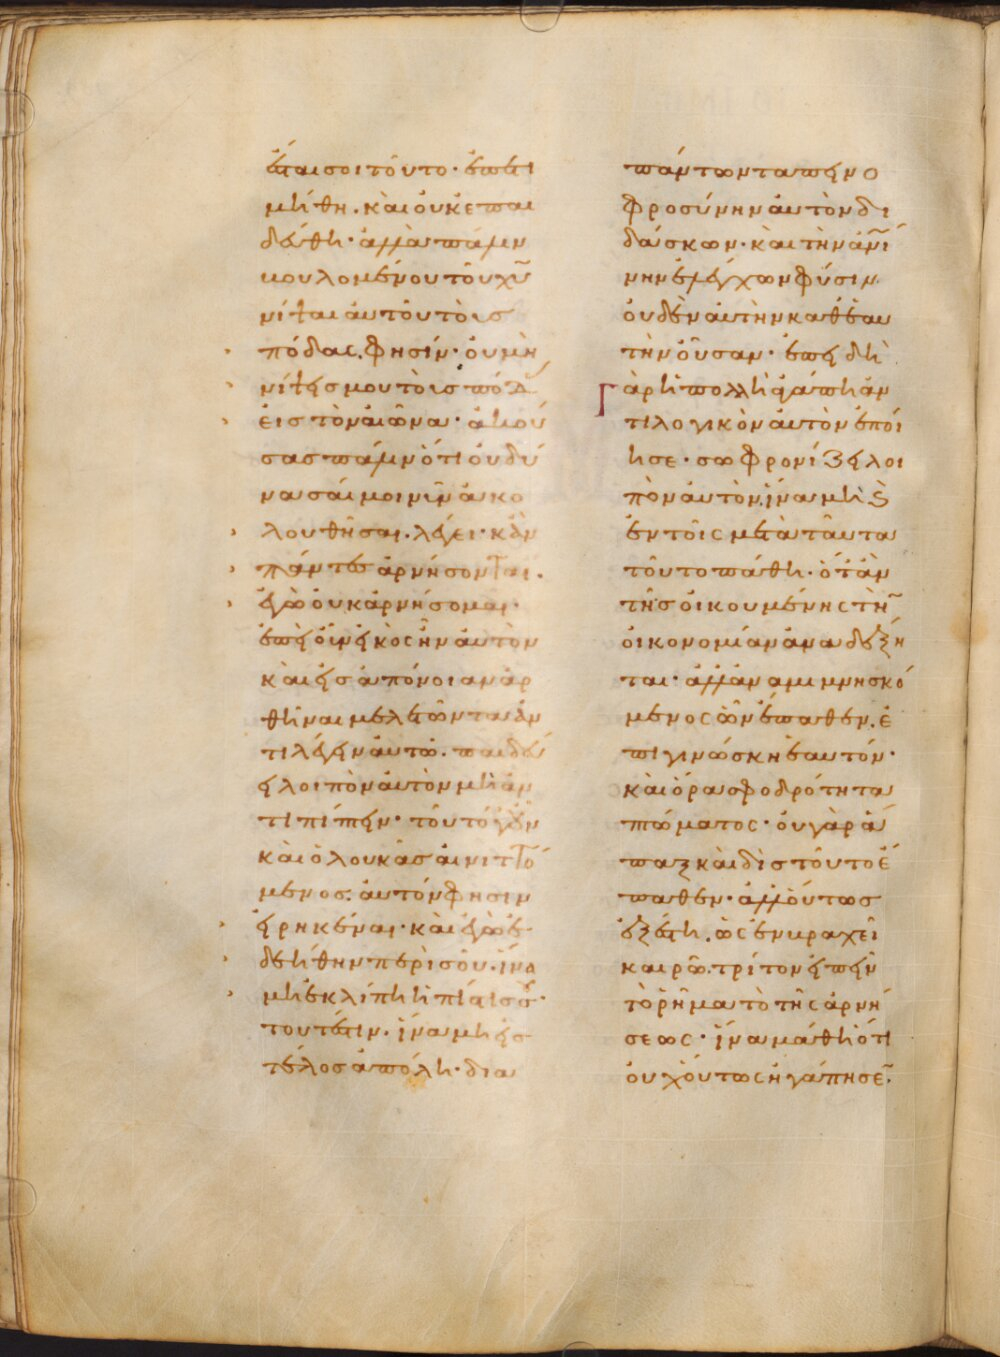 ἔσται σοι τοῦτο· ἐπετι
μήθη. καὶ οὐκ ἐπαι
δεύθη· ἀλλὰ πάλιν
βουλομένου τοῦ χῦ
νίψαι αὐτοῦ τοὺς
πόδας, φησίν· οὐ μὴ
νίψεις μου τοὺς πόδ
εἰς τὸν αἰῶνα· ἀκού
σας πάλιν ὅτι οὐ δύ
νασαί μοι νῦν ἀκο
λουθῆσαι. λέγει· κἂν
πάντες ἀρνήσονται.
ἐγὼ οὐκ ἀρνήσομαι·
ἐπεὶ οὖν εἰκὸς ἦν αὐτὸν
καὶ εἰς ἀπόνοιαν ἀρ
θῆναι μελετῶντα ἀν
τιλέγειν αὐτῶ. παιδεύ
ει λοιπὸν αὐτὸν μὴ ἀν
τιπίπτειν· τοῦτο γοῦν
καὶ ὁ λουκᾶς αἰνιττό
μενος. αὐτόν φησιν
εἰρηκέναι· καὶ ἐγὼ ἐ
δεήθην περὶ σοῦ. ἵνα
μὴ ἐκλίπη ἡ πίστις σου·
τουτέστιν. ἵνα μὴ εἰς
τέλος ἀπόλη· δια
πάντων ταπεινο
φροσύνην αὐτὸν δι
δάσκων. καὶ τὴν ἀνί
νην ἐλέγχων φύσιν
οὐδὲν αὐτὴν καθ ἑαυ
τὴν οὖσαν· ἐπειδὴ
Γὰρ ἡ πολλὴ ἀγάπη ἀν
τιλογικὸν αὐτὸν ἐποί
ησε· σωφρονίζει λοι
πὸν αὐτὸν, ἵνα μὴ ϗ
ἐν τοῖς μετὰ ταῦτα
τοῦτο πάθη. ὅταν
τῆς οἰκουμένης τὴ
οἰκονομίαν ἀναδέξη
ται· ἀλλ ἀναμιμνησκό
μενος ὧν ἔπαθεν. ἐ
πιγινώσκη ἑαυτόν·
καὶ ὅρα σφοδρότητα
πτώματος· οὐ γὰρ ἅ
παξ καὶ δὶς τοῦτο ἔ
παθεν· ἀλλ οὕτως
ἐξέστη. ὡς ἐν βραχεῖ
καιρῶ. τρίτον εἰπεῖν
τὸ ῥῆμα τὸ τῆς ἀρνή
σεως· ἵνα μάθη ὅτι
οὐχ οὕτως ἠγάπησε